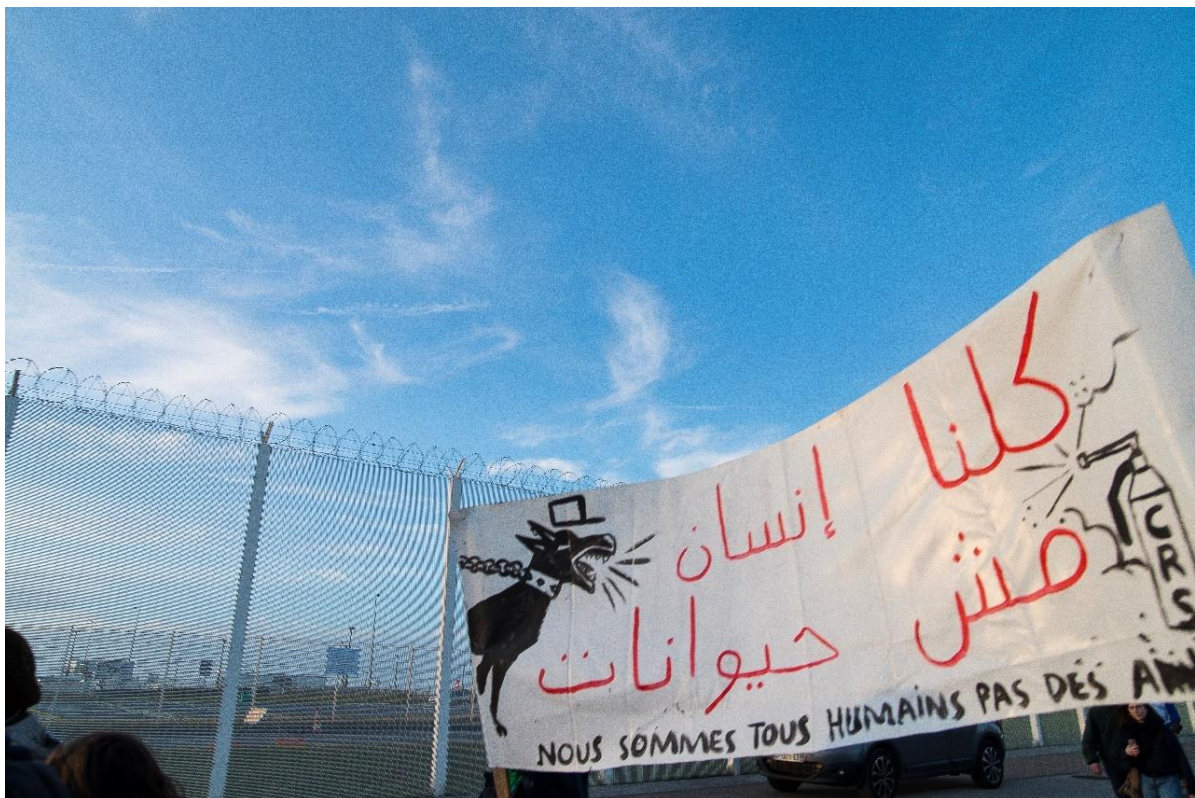 كلنا إنسان
مش حيوانات
CRS
NOUS SOMMES TOUS HUMAINS PAS DES